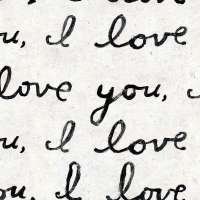 ou, I love
love you,
u, I love
ou, I love